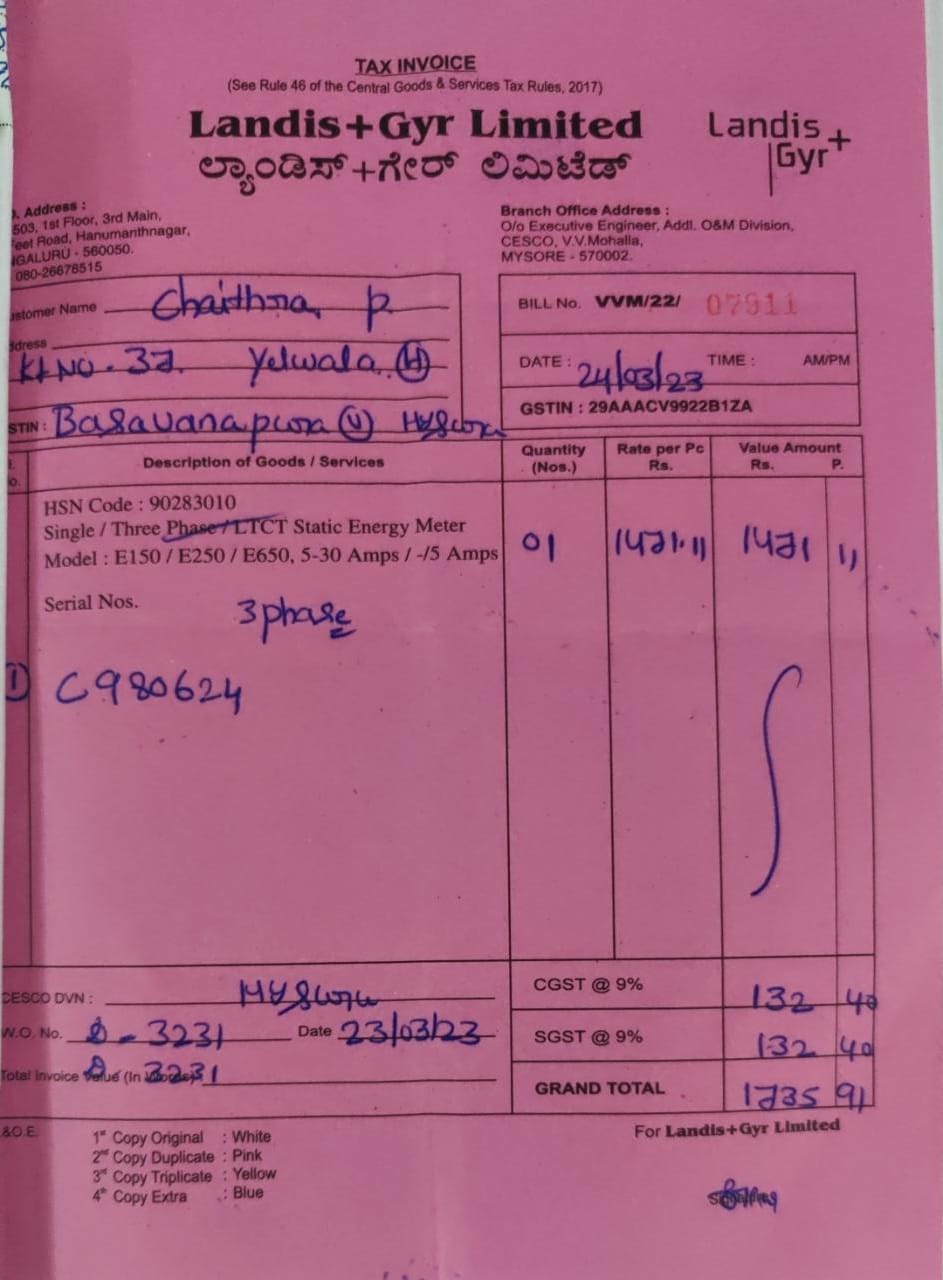 TAX INVOICE
(See Rule 46 of the Central Goods & Services Tax Rules, 2017)
Landis+Gyr Limited
Landis+
Gyr
ಲ್ಯಾಂಡಿಸ್+ಗೇರ್ ಲಿಮಿಟೆಡ್
. Address :
503, 1st Floor, 3rd Main,
eet Road, Hanumanthnagar,
GALURU - 560050.
080-26678515
Branch Office Address :
O/o Executive Engineer, Addl. O&M Division,
CESCO, V.V.Mohalla,
MYSORE - 570002.
ustomer Name Chaithra P
ddress
Kt No. 37. Yelwala (H)
STIN : Basavanapura (V) Mysuru
BILL No. VVM/22/ 07911
DATE : 24/03/23 TIME : AM/PM
GSTIN : 29AAACV9922B1ZA
Description of Goods / Services
Quantity (Nos.) Rate per Pc Rs. Value Amount Rs. P.
HSN Code : 90283010
Single / Three Phase / LTCT Static Energy Meter
Model : E150 / E250 / E650, 5-30 Amps / -/5 Amps 01 1471.11 1471 11
Serial Nos.
3 phase
1 C980624
CESCO DVN : Mysuru
W.O. No. D-3231 Date 23/03/23
Total Invoice Value (In 3231
CGST @ 9% 132 40
SGST @ 9% 132 40
GRAND TOTAL 1735 91
&O.E.
1st Copy Original : White
2nd Copy Duplicate : Pink
3rd Copy Triplicate : Yellow
4th Copy Extra : Blue
For Landis+Gyr Limited